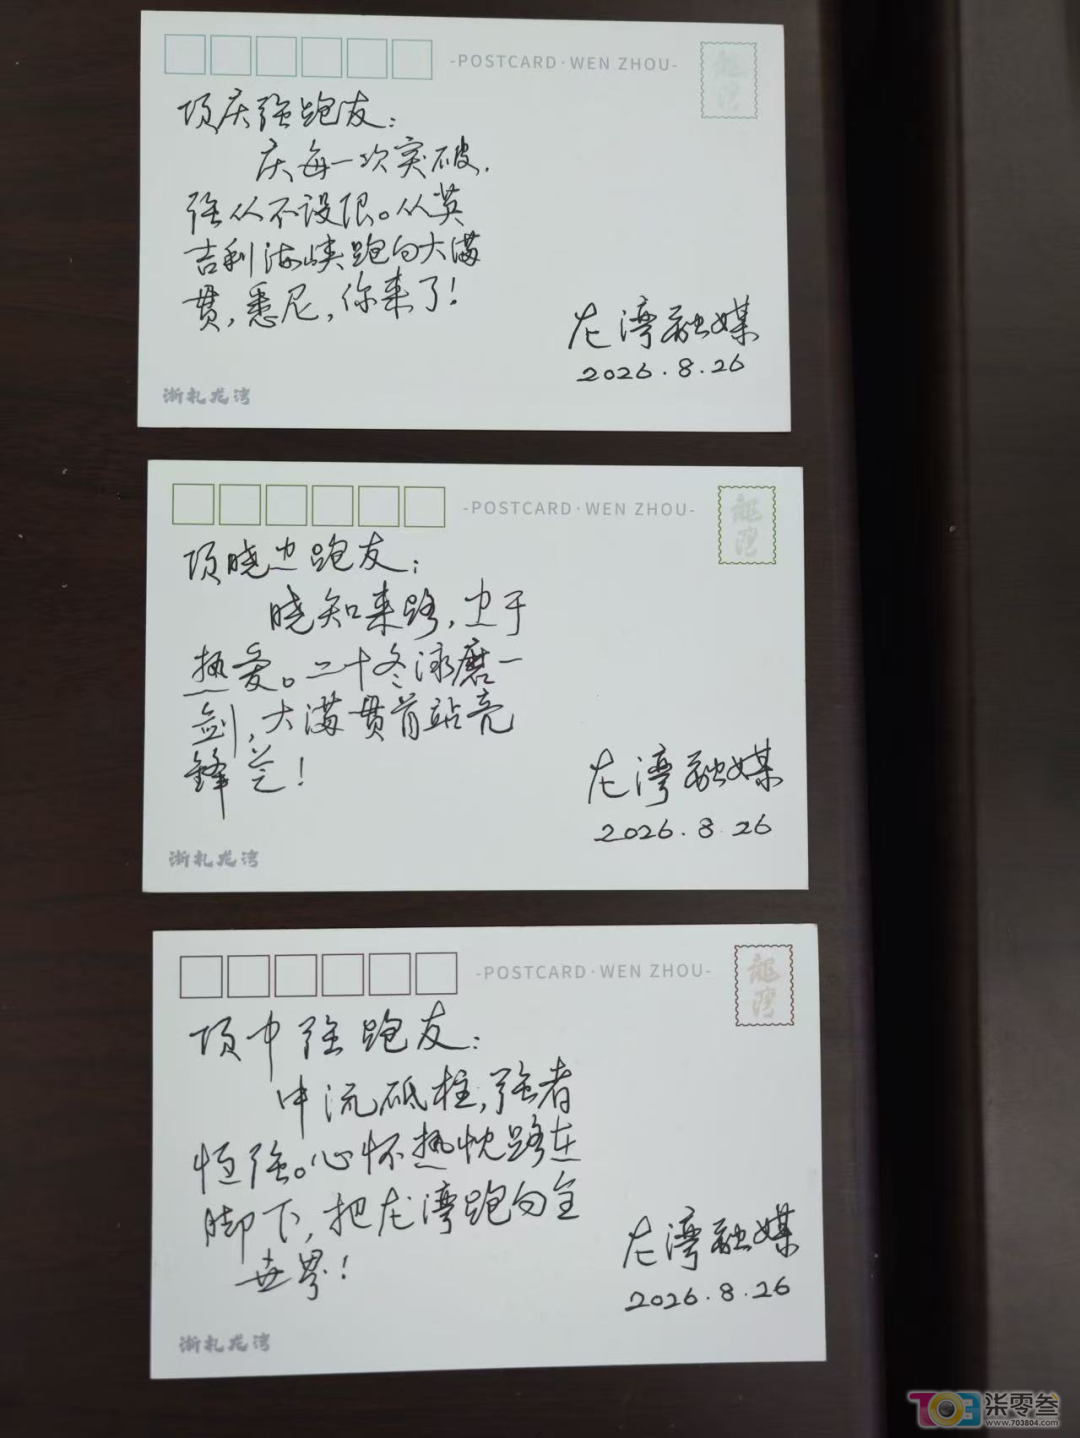 -POSTCARD·WEN ZHOU-
龍灣
项庆强跑友：
庆每一次突破，
强从不设限。从英
吉利海峡跑向大满
贯，悉尼，你来了！
龙湾融媒
2026.8.26
浙札龙湾
-POSTCARD·WEN ZHOU-
龍灣
项晓忠跑友：
晓知来路，忠于
热爱。二十冬泳磨一
剑，大满贯首站亮
锋芒！
龙湾融媒
2026.8.26
浙札龙湾
-POSTCARD·WEN ZHOU-
龍灣
项中强跑友：
中流砥柱，强者
恒强。心怀热忱路在
脚下，把龙湾跑向全
世界！
龙湾融媒
2026.8.26
浙札龙湾
703 柒零叁
www.703804.com